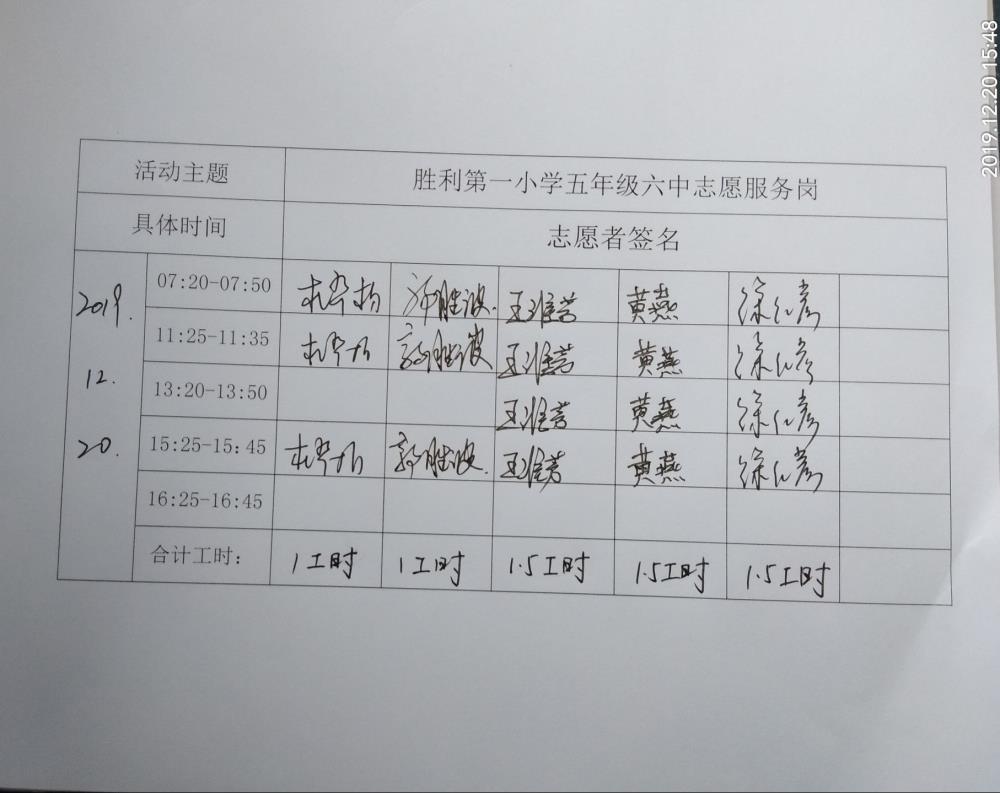 2019.12.20 15:48
活动主题 胜利第一小学五年级六中志愿服务岗
具体时间 志愿者签名
2019. 07:20-07:50 王维芳 黄燕 徐红彦
11:25-11:35 郭胜波 王维芳 黄燕 徐红彦
12. 13:20-13:50 王维芳 黄燕 徐红彦
20. 15:25-15:45 郭胜波. 王维芳 黄燕 徐红彦
16:25-16:45
合计工时: 1工时 1工时 1.5工时 1.5工时 1.5工时